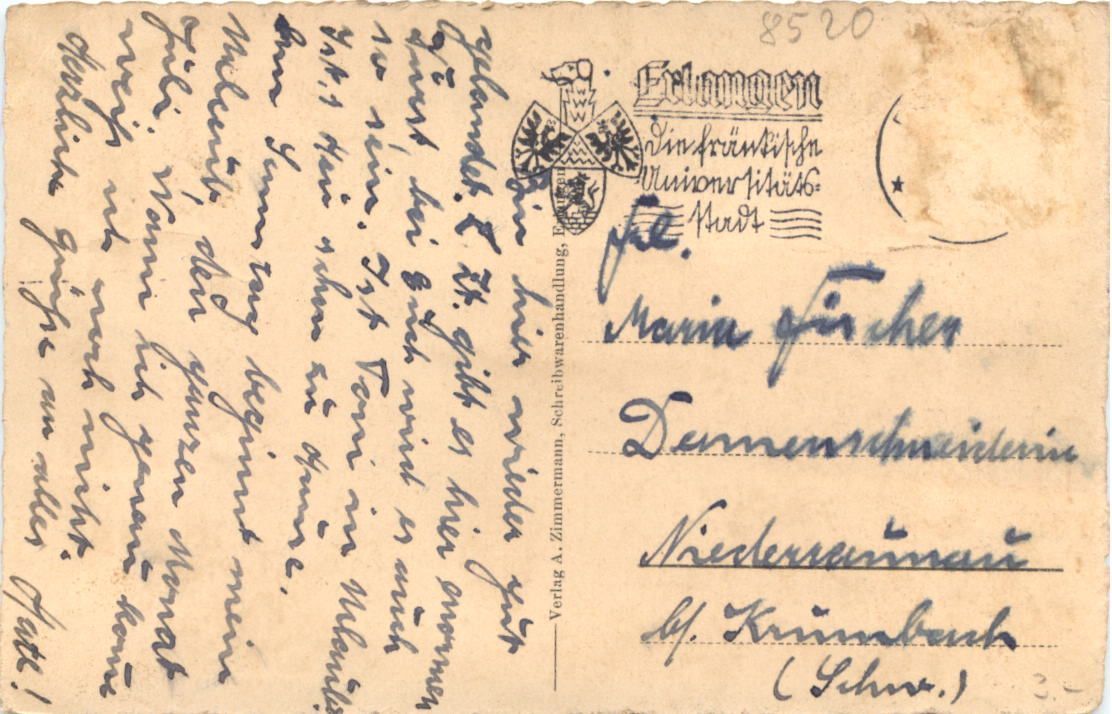 8520
Erlangen
die fränkische
Universitäts-
Stadt
Bin hier wieder gut
gelandet. Z. Zt. gibt es hier enormen
Durst, bei Euch wird es auch
so sein. Ist Toni in Urlaub?
Ist's Heu schon zu Hause.
Am Samstag beginnt mein
Urlaub, den ganzen Monat
Juli. Wann ich genau komme
weiß ich noch nicht.
Herzliche Grüße an alles
Verlag A. Zimmermann, Schreibwarenhandlung, Erlangen
Frl.
Maria Fischer
Damenschneiderin
Niederraunau
b/. Krumbach
(Schw.)
3.-